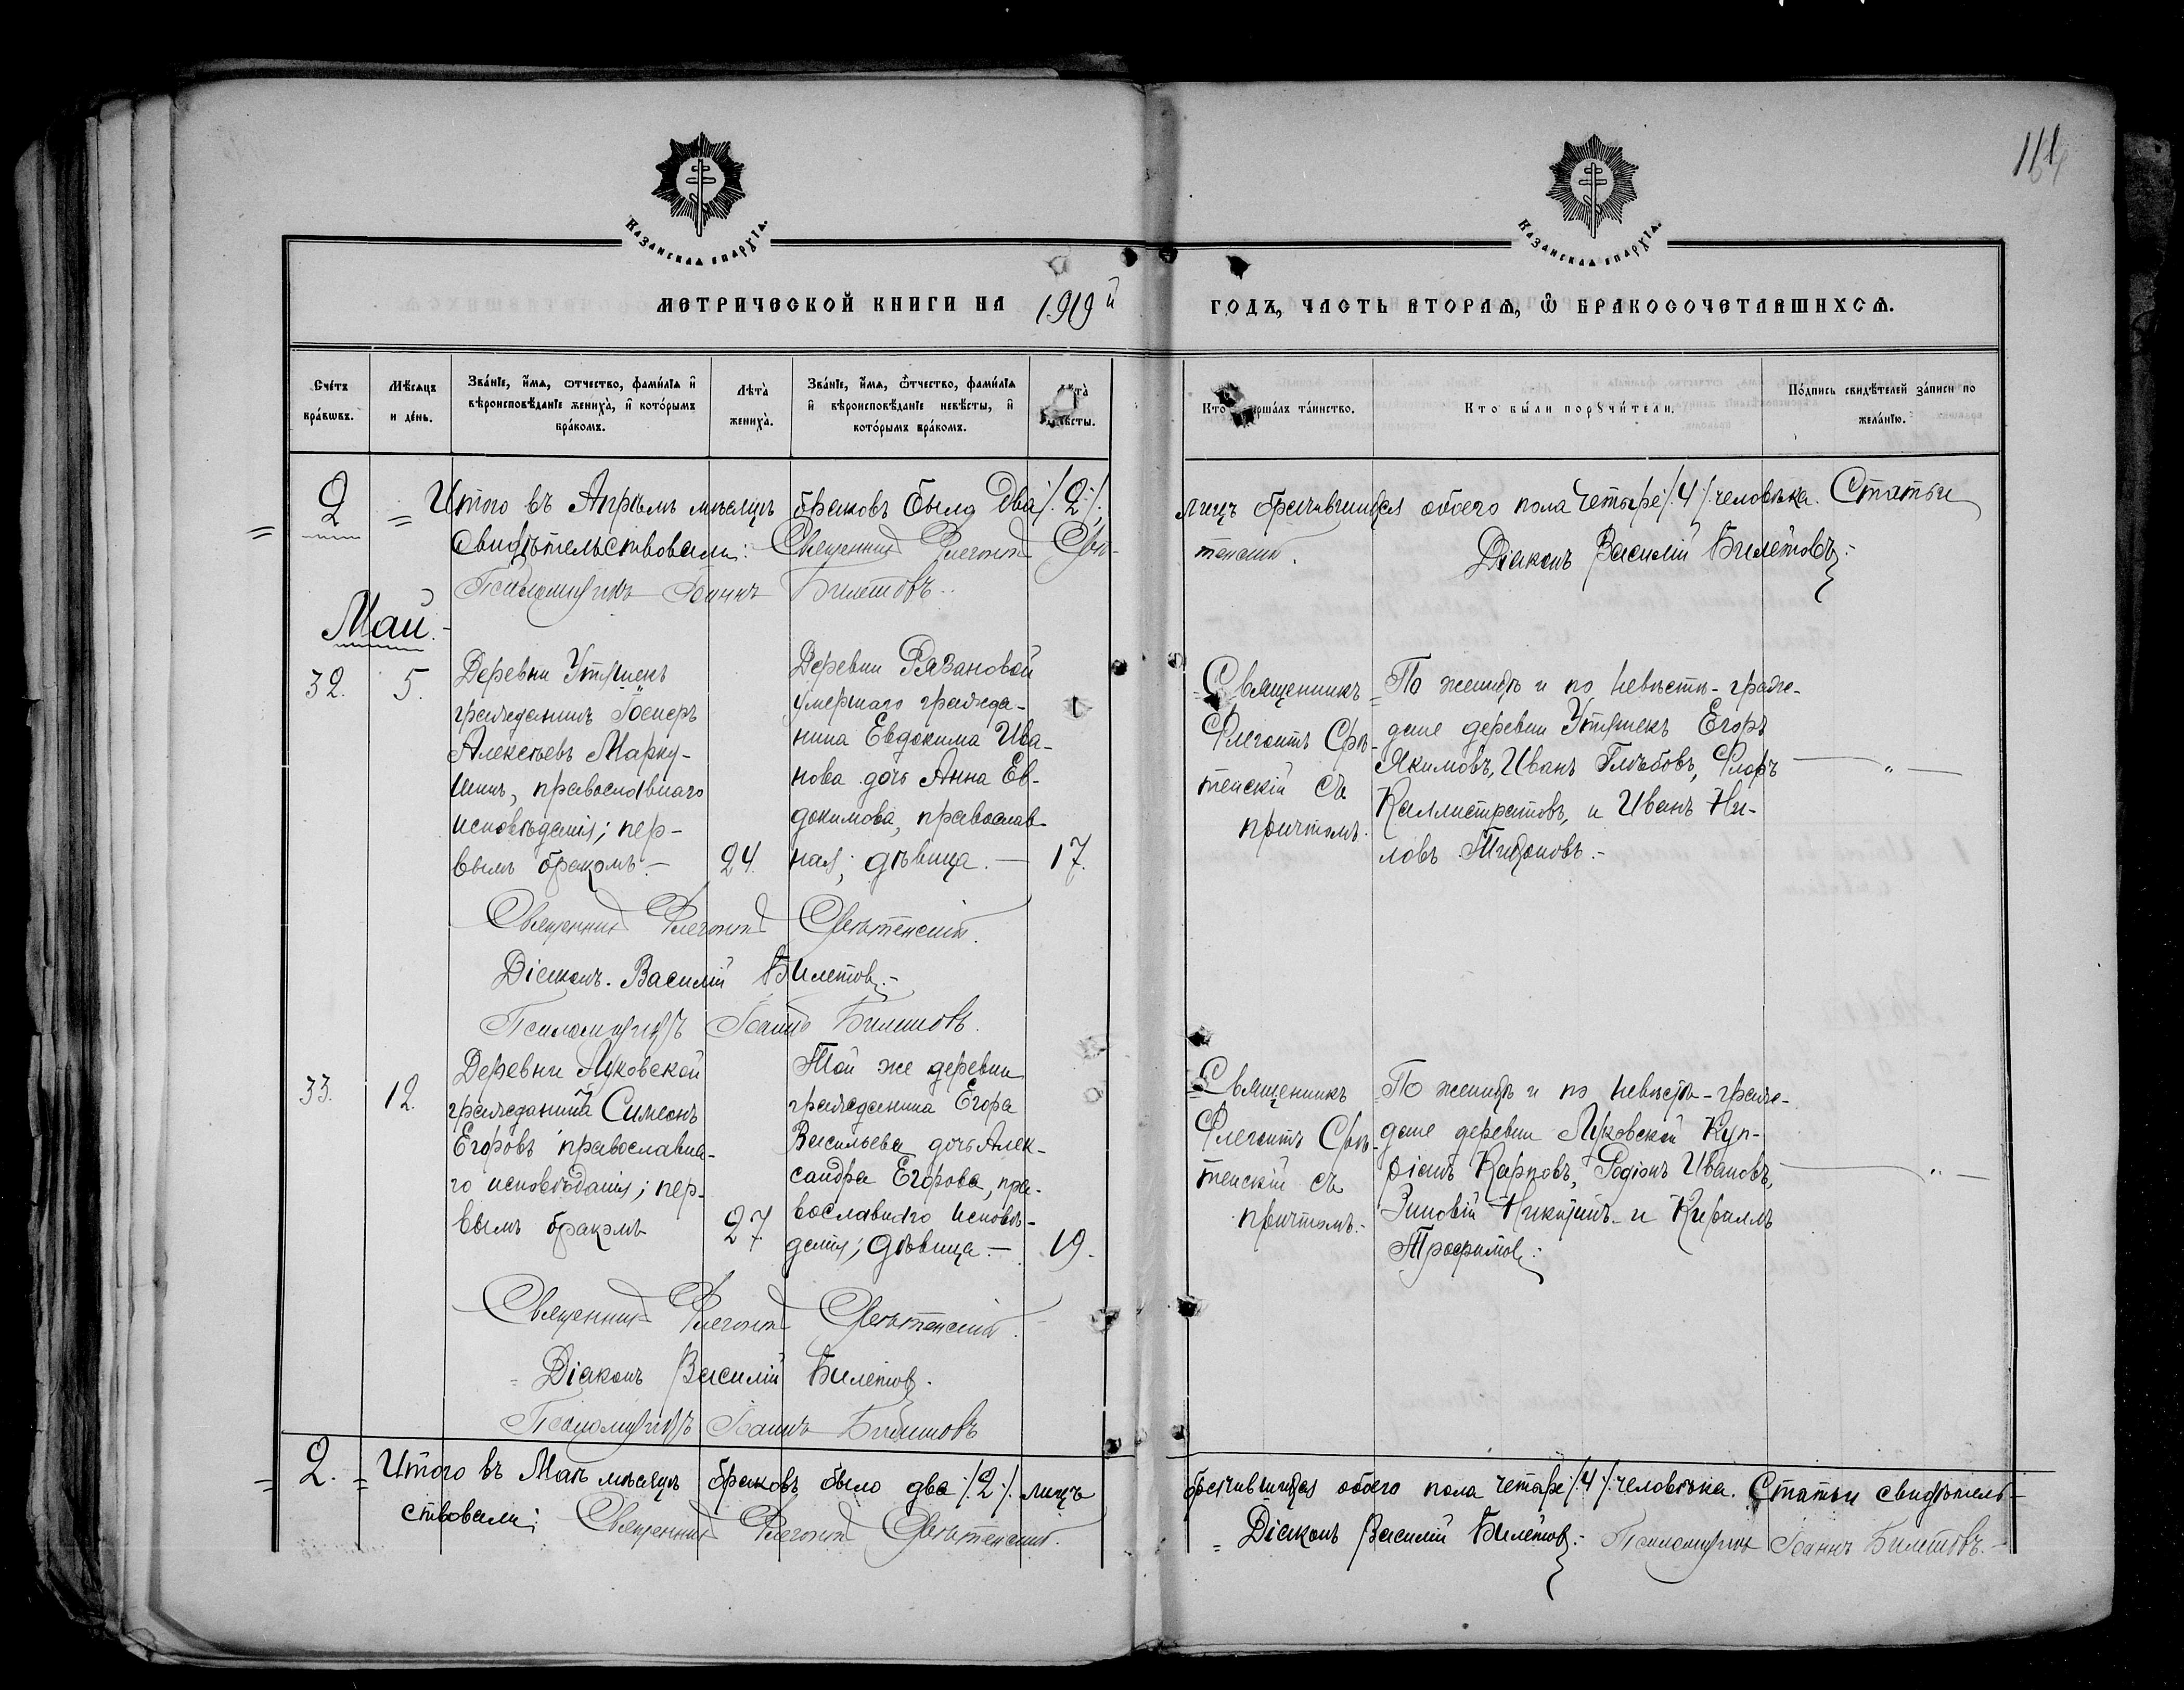 111
Казанская епархїя.
Казанская епархїя.
МЕТРИЧЕСКОЙ КНИГИ НА 1919й ГОДЪ, ЧАСТЬ ВТОРАЯ, Ѡ БРАКОСОЧЕТАВШИХСЯ.
Счетъ браковъ.
Мѣсяцъ и день.
Званїе, имя, отчество, фамилїя и вѣроисповѣданїе жениха, и которымъ бракомъ.
Лѣта жениха.
Званїе, имя, отчество, фамилїя и вѣроисповѣданїе невѣсты, и которымъ бракомъ.
Лѣта невѣсты.
Кто совершалъ таинство.
Кто были поручители.
Подпись свидѣтелей записи по желанїю.
2 = Итого въ Апрѣлѣ мѣсяцѣ браковъ было два /:2:/ лицъ брачившихся обоего пола четыре /:4:/ человѣка. Статьи
свидѣтельствовали: Священникъ Флегонтъ Срѣтенскій. Діаконъ Василій Билетовъ.-
Псаломщикъ Іоаннъ Билетовъ.
Май.-
32. 5.
Деревни Утяшекъ
гражданинъ Іосифъ
Алексѣевъ Марку-
шинъ, православнаго
исповѣданія; пер-
вымъ бракомъ.-
24.
Деревни Рязановой
умершаго гражда-
нина Евдокима Ива-
нова дочь Анна Ев-
докимова, православ-
ная; дѣвица.-
17.
Священникъ
Флегонтъ Срѣ-
тенскій съ
причтомъ.
По женихѣ и по невѣстѣ - граж-
дане деревни Утяшекъ Егоръ
Якимовъ, Иванъ Глѣбовъ, Флоръ
Каллистратовъ, и Иванъ Ни-
ловъ Тихоновъ.-
— " —
Священникъ Флегонтъ Срѣтенскій.
Діаконъ Василій Билетовъ.-
Псаломщикъ Іоаннъ Билетовъ.
33. 12.
Деревни Луковской
гражданинъ Симеонъ
Егоровъ православна-
го исповѣданія; пер-
вымъ бракомъ
27.
Той же деревни
гражданина Егора
Васильева дочь Алек-
сандра Егорова, пра-
вославнаго исповѣ-
данія; дѣвица.-
19.
Священникъ
Флегонтъ Срѣ-
тенскій съ
причтомъ.-
По женихѣ и по невѣстѣ - граж-
дане деревни Луковской Куп-
ріанъ Карповъ, Родіонъ Ивановъ,
Зиновій Никитинъ и Кириллъ
Трофимовъ.
— " —
Священникъ Флегонтъ Срѣтенскій.
Діаконъ Василій Билетовъ.
Псаломщикъ Іоаннъ Билетовъ
2. = Итого въ Маѣ мѣсяцѣ браковъ было два /:2:/ лицъ брачившихся обоего пола четыре /:4:/ человѣка. Статьи свидѣтель-
ствовали: Священникъ Флегонтъ Срѣтенскій. = Діаконъ Василій Билетовъ.- Псаломщикъ Іоаннъ Билетовъ.-